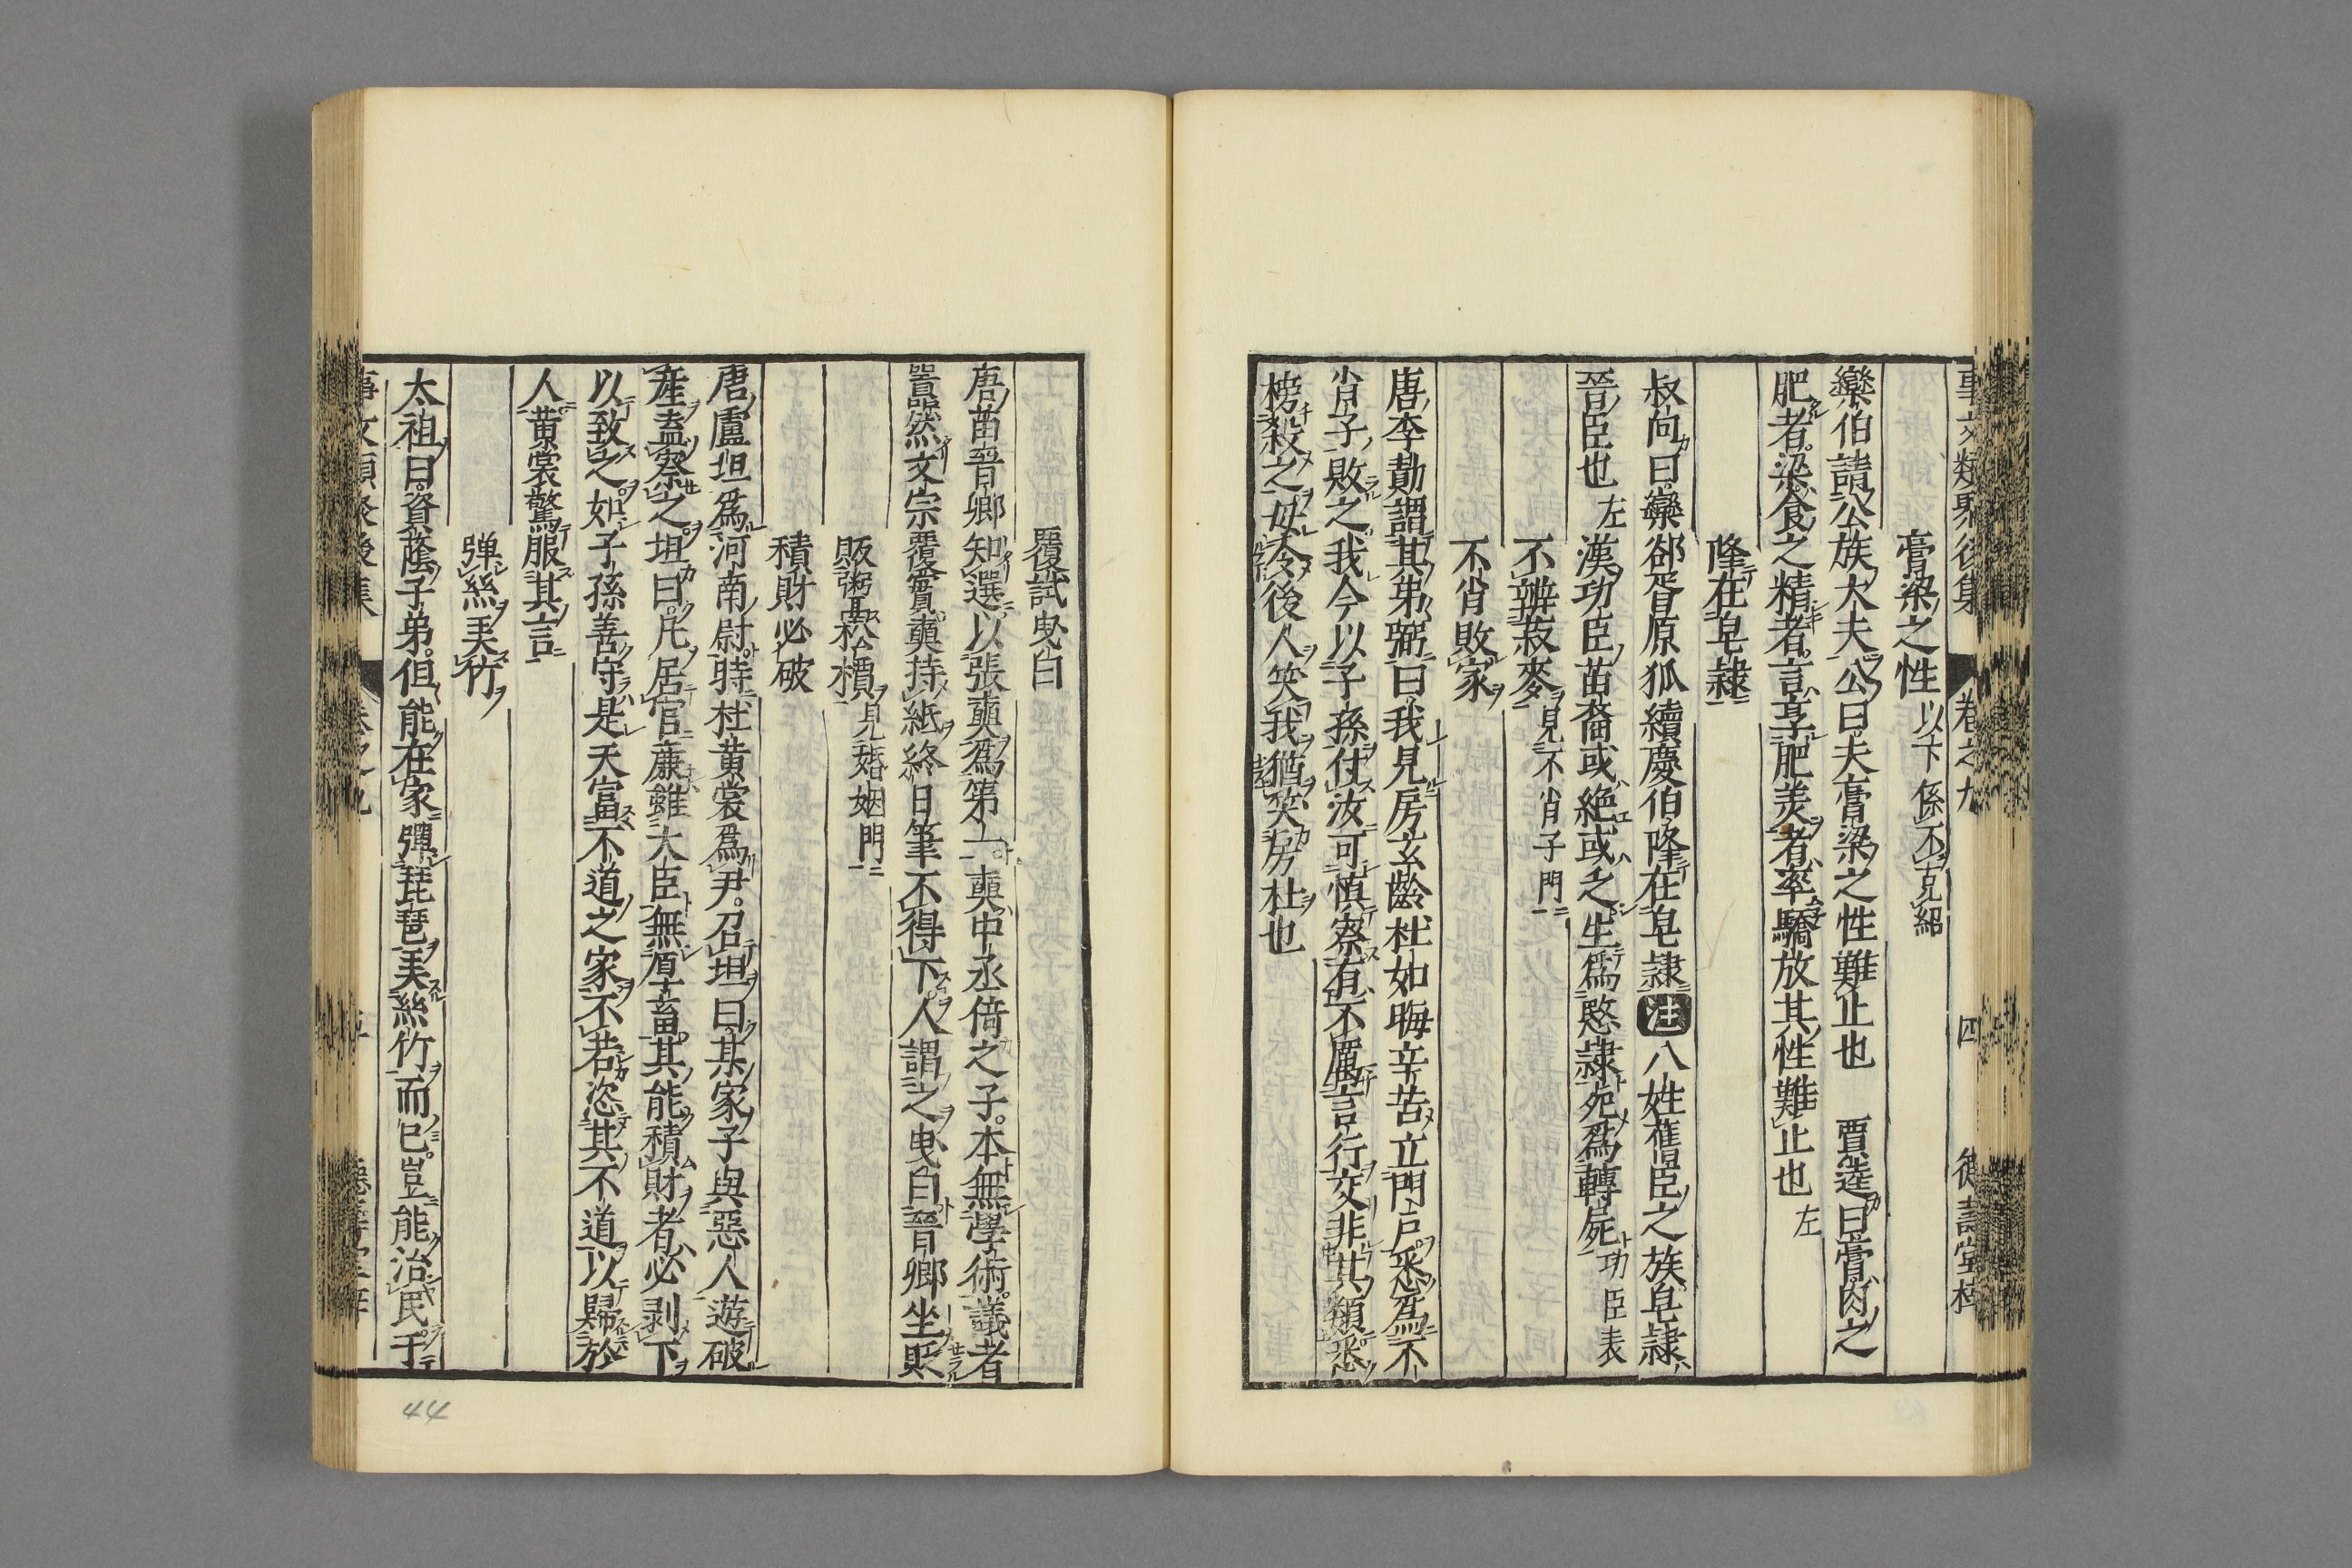 事文類聚後集 卷之九 四 德壽堂梓
膏粱之性 以下係不克紹
欒伯請公族大夫公曰夫膏粱之性難止也 賈逵曰膏肉之
肥者梁食之精者言享肥羡者率驕放其性難止也 左
降在皂隸
叔向曰欒郤胥原狐續慶伯降在皂隸 注 八姓舊臣之族皂隸
晉臣也 左 漢功臣苗裔或絶或乏生爲愍隸死爲轉屍 功臣表
不辨菽麥 見不肖子門
不肖敗家
唐李勣謂其弟弼曰我見房玄齡杜如晦辛苦立門戸悉爲不
肖子敗之我今以子孫付汝可慎察有不厲言行交非其類悉
榜殺之毋令後人笑我猶笑房杜也
覆試曵白
唐苗晉卿知選以張奭爲第一奭中丞倚之子本無學術議者
囂然文宗覆實奭持紙終日筆不得下人謂之曵白晉卿坐貶
販粥松檟 見婚姻門
積財必破
唐盧坦爲河南尉時杜黄裳爲尹召坦曰某家子與惡人遊破
産盍察之坦曰凡居官廉雖大臣無厚畜其能積財者必剥下
以致之如子孫善守是天富不道之家不若恣其不道以歸於
人黄裳驚服其言
弾絲美竹
太祖曰資蔭子弟但能在家彈琵琶美絲竹而已豈能治民乎